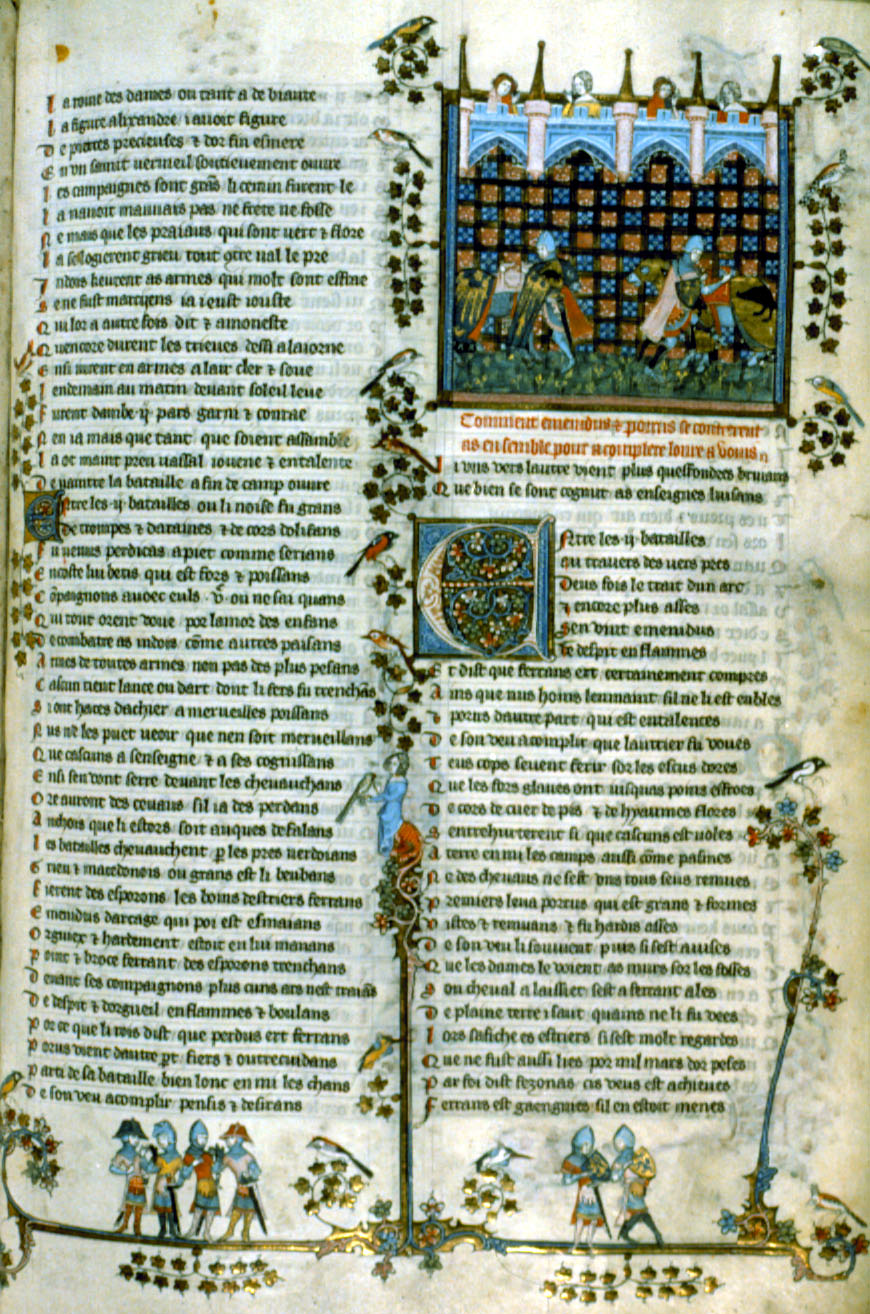 l a roine des dames ou tant a de biaute
l a figure alixandre i avoit figure
D e pieres precieuses ⁊ dor fin esmere
E n un samit vermeil soutieuement ouvre
l es campaignes sont grãs li cemin furent le
l a n'avoit mauvais pas ne frete ne fosse
N e mais que les praiaus qui sont vert ⁊ flore
l a se logierent grieu tout otre val le pre
I ndois keurent as armes qui molt sont effine
S e ne fust marciens ia ieust iouste
Q ui lor a autre fois dit ⁊ amoneste
Q uencore durent les trieues dessi a laiorne
E nsi iurent en armes a lair cler ⁊ soue
l endemain au matin devant soleil leue
F urent dambe .ij. pars garni ⁊ conrae
N en ia mais que tant que soient assamble
l a ot maint preu vassal iouene ⁊ entalente
D e vaintre la bataille a fin de camp ouure
E ntre les .ij. batailles ou li noise fu grans
De trompes ⁊ dataines ⁊ de cors dolifans
F u venus perdicas a piet comme serians
E ncoste lui betis qui est fors ⁊ poissans
C õpaignons avoec euls ou ne sai quans
Q ui tout orent voue por lamor des enfans
D e combatre as indois cõme autres paisans
A rmes de toutes armes non pas des plus pesans
C ascun tient lance ou dart dont li fers fu trenchãs
S i ont haces dachier a merveilles poissans
N us ne les puet veoir que nen soit merveillans
Q ue cascuns a senseigne ⁊ a ses cognissans
E nsi sen vont serre devant les chevauchans
O re auront des cevaus sil i a des perdans
A nchois que li estors soit auques defalans
l es batailles chevauchent p les pres verdoians
G rieu ⁊ macedonois ou grans est li beubans
F ierent des esporons les boins destriers ferrans
E menidus darcage qui poi est esmaians
O rguiex ⁊ hardement estoit en lui manans
P oint ⁊ broce ferrant des esporons trenchans
D evant ses compaignons plus cuns ars nest traians
D e despit ⁊ dorgueil enflammes ⁊ boulans
P or ce que li rois dist que perdus ert ferrans
P orus vient dautre pt fiers ⁊ outrecuidans
P arti de sa bataille bien lonc en mi les chans
D e son veu acomplir pensis ⁊ desirans
Comment emenidus ⁊ porrus se contrerent
as ensemble pour acomplere loure a vouis
l i uns vers lautre vient plus queffondres bruians
Q ue bien se sont cognut as enseignes luisans
E Ntre les .ij. batailles
au travers des vers pres
Deus fois le trait dun arc
⁊ encore plus asses
Sen vint emenidus
de despit enflammes
E t dist que ferrans ert certainement compres
A ins que nus hoins lenmaint sil ne li est enbles
⁊ porus dautre part qui est entalentes
D e son veu acomplir que lautrier fu voues
T eus cops sevent ferir sor les escus dores
Q ue les fors glaues ont iusquas poins effroes
D e cors de cuer de pis ⁊ de hyaumes flores
S entrehurterent si que cascuns est voles
A terre en mi les camps aussi cõme pasmes
N e des chevaus ne sest uns tous seus remues
P remiers leva porrus qui est grans ⁊ formes
V istes ⁊ remuans ⁊ fu hardis asses
D e son veu li souvient puis si sest avises
Q ue les dames le voient as murs sor les fosses
S on cheval a laissiet sest a ferrant ales
D e plaine terre i saut quains ne li fu vees
l ors safiche es estriers si sest molt regardes
Q ue ne fust aussi lies por mil mars dor peses
P ar foi dist fezonas cis veus est achieues
F errans est gaengnies sil en estoit menes